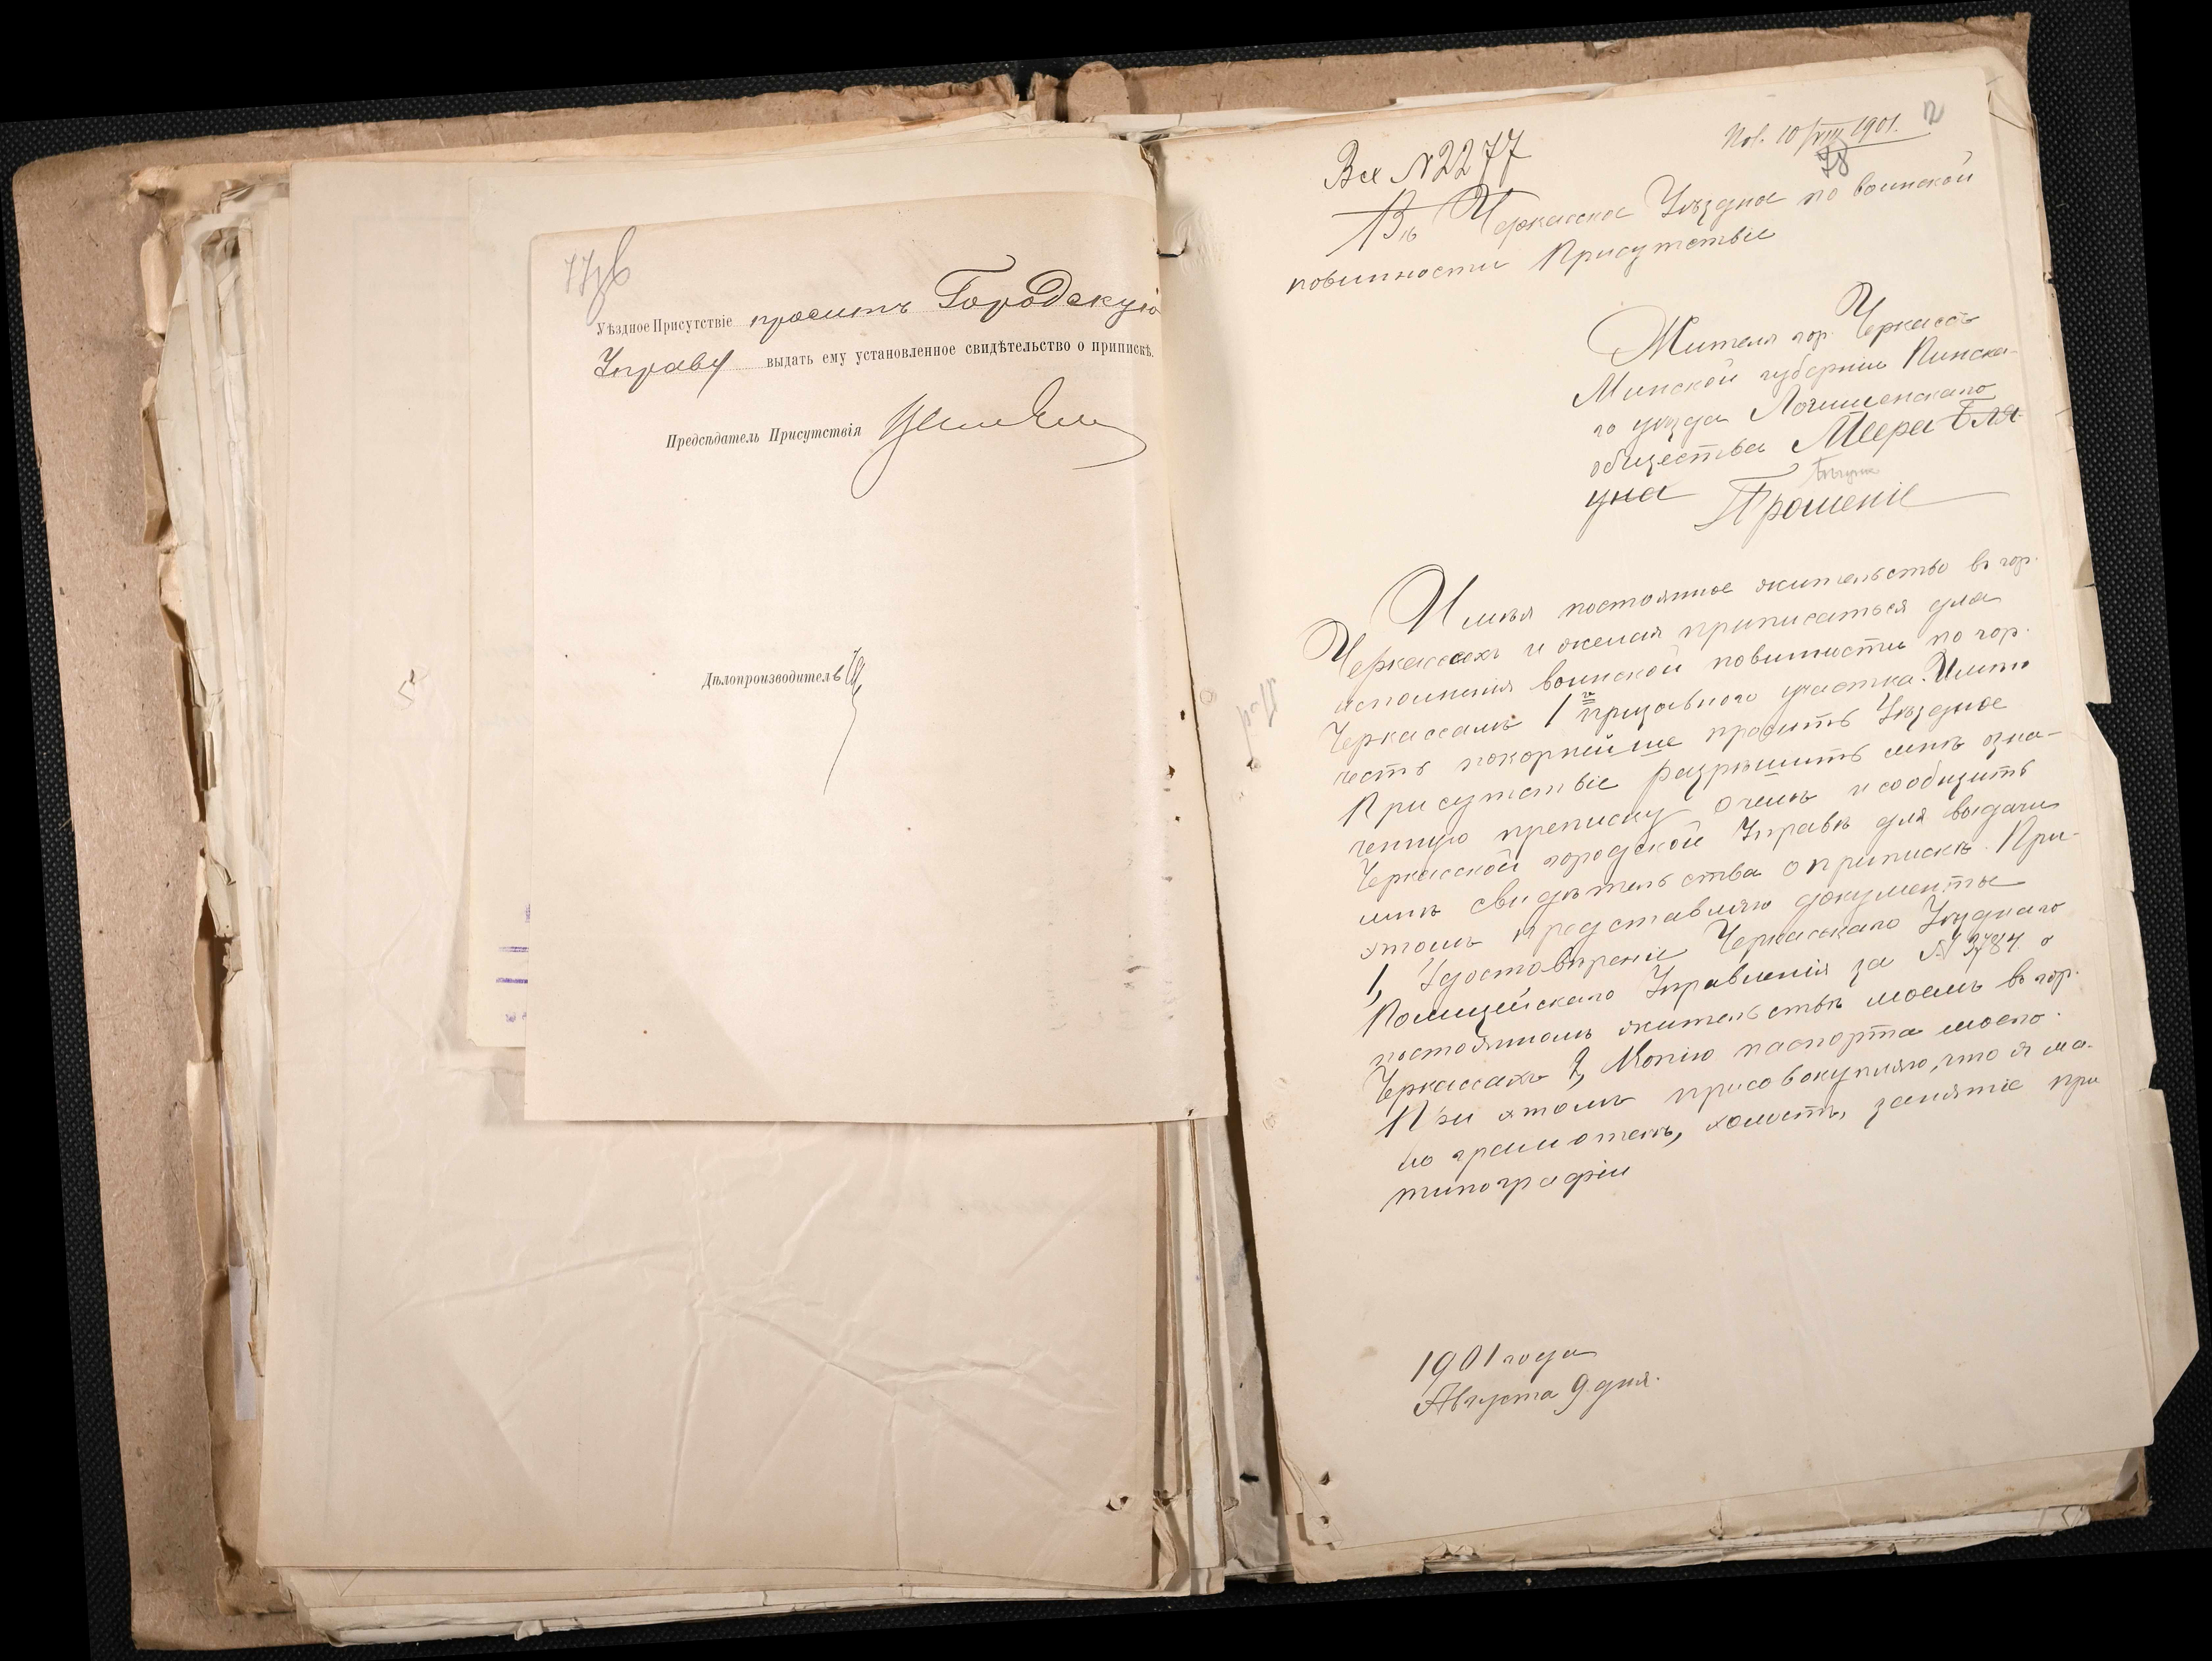 Уѣздное Присутствіе проситъ Городскую
Управу выдать ему установленное свидѣтельство о припискѣ.
Предсѣдатель Присутствія
Дѣлопроизводитель
Вх №2277
Пол. 10/VIII 1901.
78
Въ Черкасское Уѣздное по воинской
повинности Присутствіе
Жителя гор. Черкассъ
Минской губерніи Пинска-
го уѣзда Логишенскаго
общества Меера Бля-
уна
Прошеніе
Имѣя постоянное жительство въ гор.
Черкассахъ и желая приписаться для
исполненія воинской повинности по гор.
Черкассамъ 1го призывного участка. Имѣю
честь покорнейше просить Уѣздное
Присутствіе разрѣшить мнѣ озна-
ченную преписку о чемъ и сообщить
Черкасской городской Управѣ для выдачи
мнѣ свидѣтельства о припискѣ. При
этомъ представляю документы
1, Удостовѣреніе Черкаскаго Уѣзднаго
Полицейскаго Управленія за №3784. о
постоянномъ жительствѣ моемъ въ гор.
Черкассахъ 2, Копію паспорта моего.
При этомъ присовокупляю, что я ма-
ло грамотенъ, холостъ, занятіе при
типографіи
1901 года
Августа 9 дня.